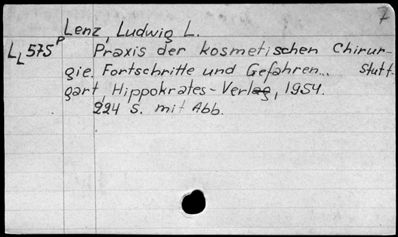 7
Lenz, Ludwig L.
LL575P Praxis der kosmetischen Chirur-
gie. Fortschritte und Gefahren... Stutt-
gart, Hippokrates-Verlag, 1954.
224 S. mit Abb.